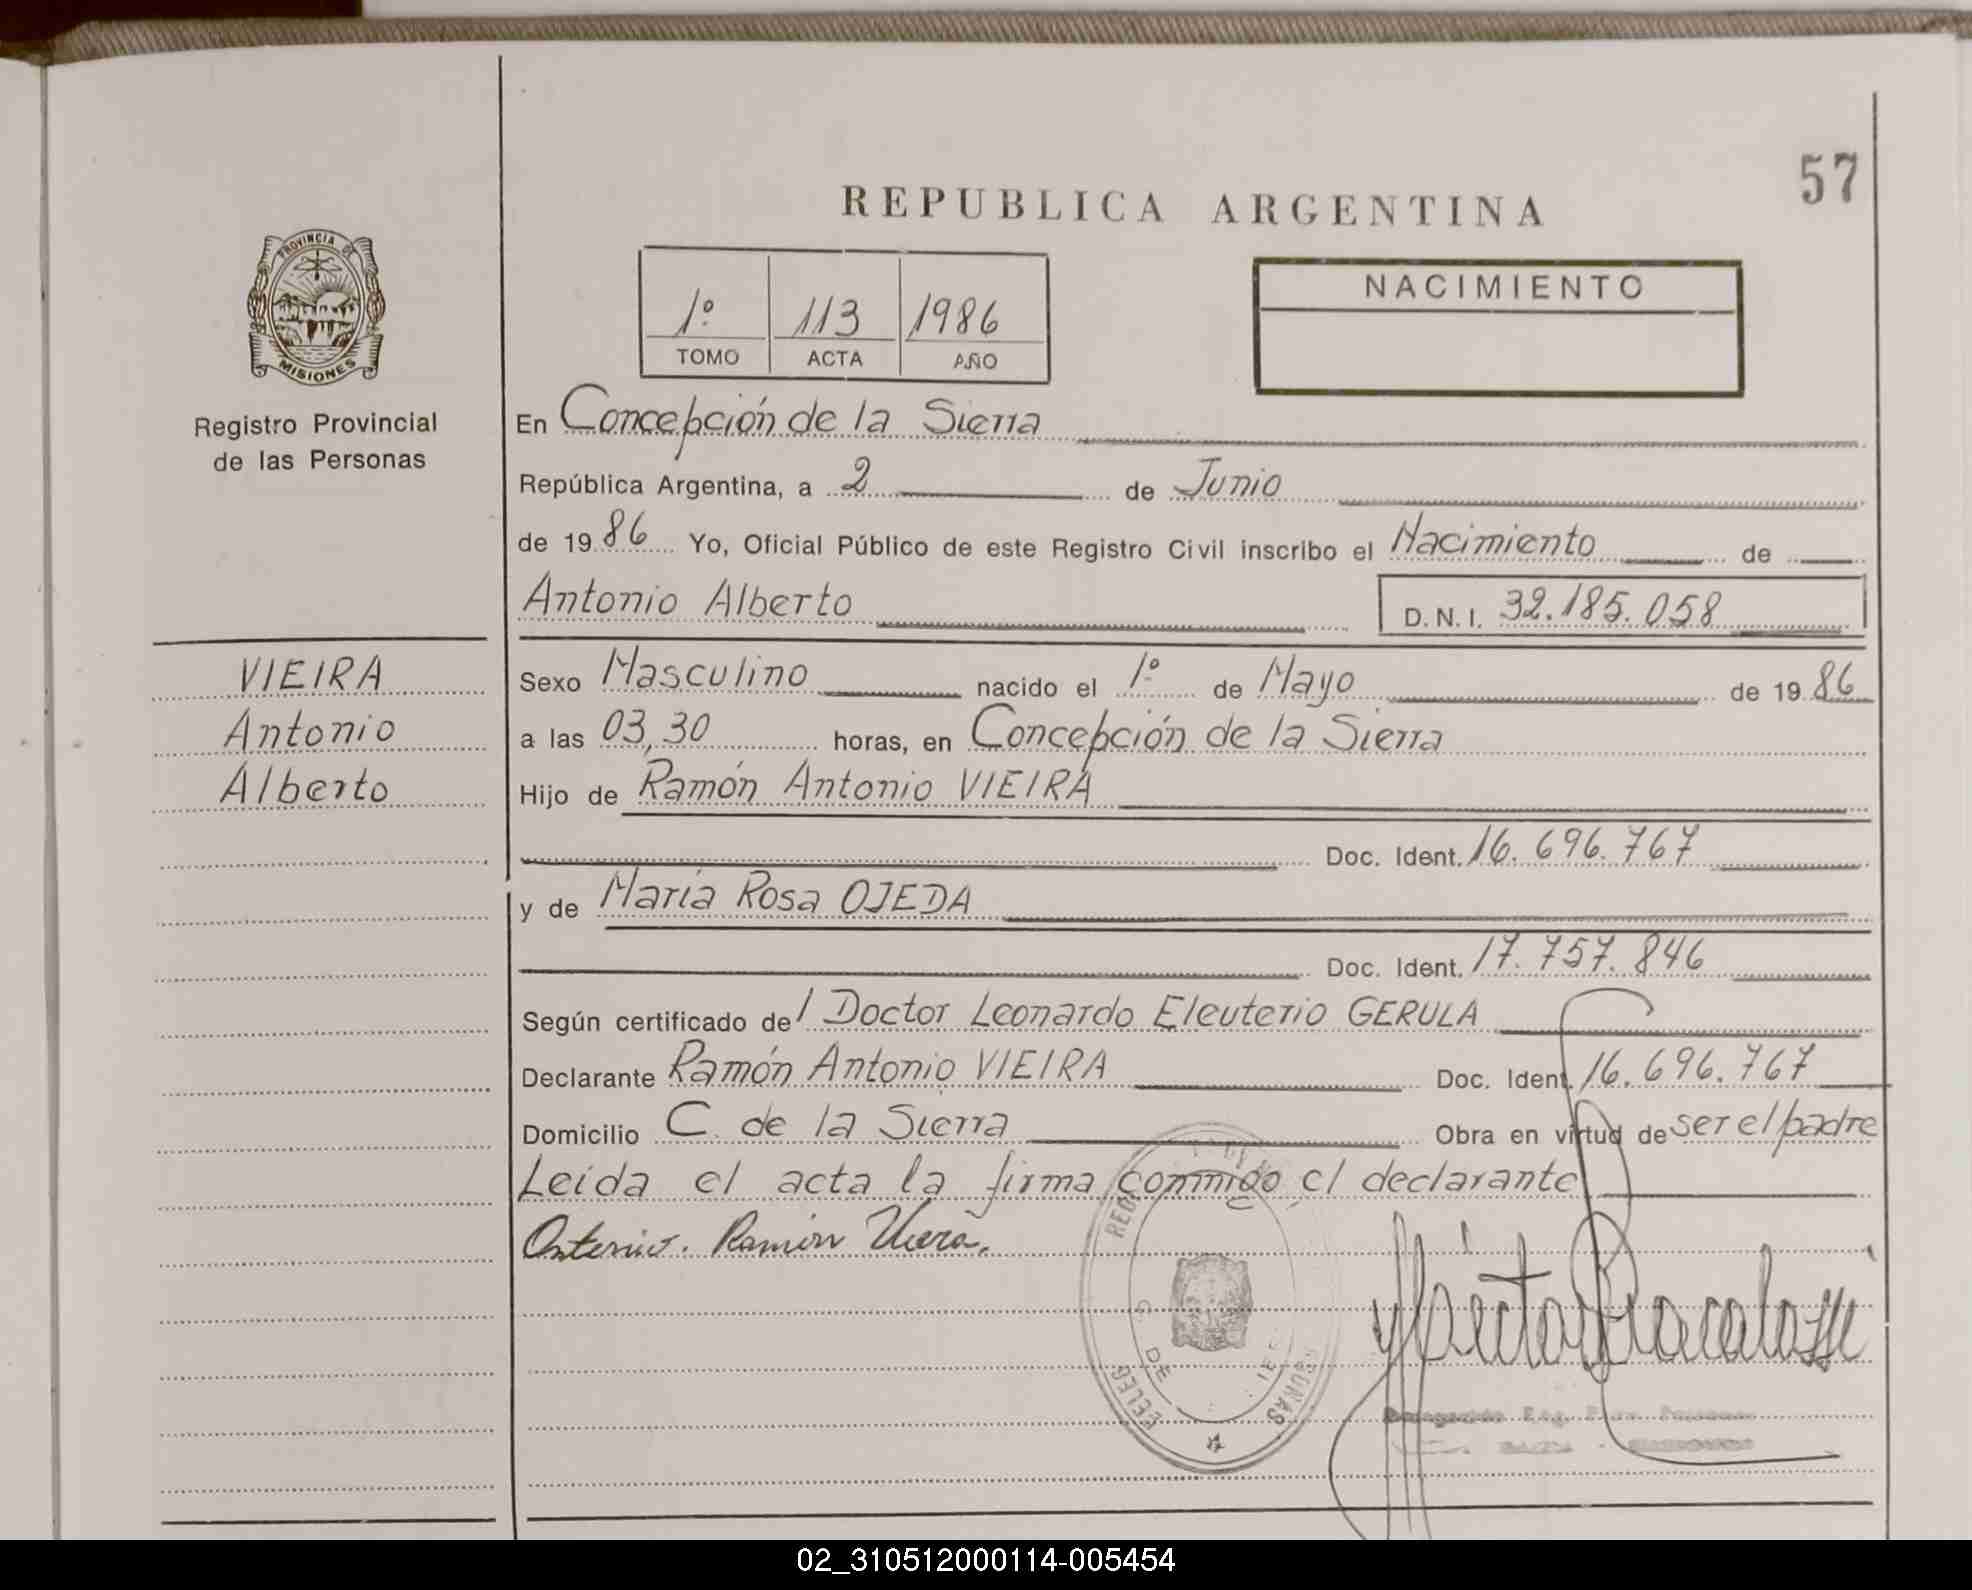 57
REPUBLICA ARGENTINA
PROVINCIA DE
MISIONES
Registro Provincial
de las Personas
1º 113 1986
TOMO ACTA AÑO
NACIMIENTO
En Concepción de la Sierra
República Argentina, a 2 de Junio
de 1986 Yo, Oficial Público de este Registro Civil inscribo el Nacimiento de
Antonio Alberto D.N.I. 32.185.058
VIEIRA
Antonio
Alberto
Sexo Masculino nacido el 1º de Mayo de 1986
a las 03,30 horas, en Concepción de la Sierra
Hijo de Ramón Antonio VIEIRA
Doc. Ident. 16.696.767
y de María Rosa OJEDA
Doc. Ident. 17.757.846
Según certificado del Doctor Leonardo Eleuterio GERULA
Declarante Ramón Antonio VIEIRA Doc. Ident. 16.696.767
Domicilio C. de la Sierra Obra en virtud de ser el padre
Leída el acta la firma conmigo el declarante
Antonio. Ramón Vieira.
02_310512000114-005454